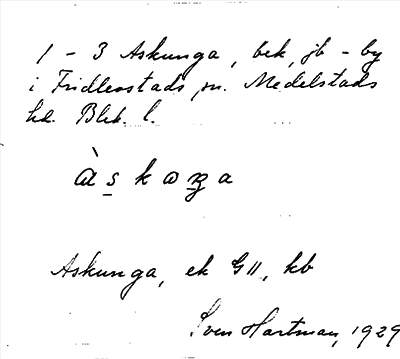 1 - 3 Askunga, bek, jb - by
i Fridlevstads sn. Medelstads
hd. Blek. l.
àskaŋa
Askunga, ek G11, kb
Sven Hartman, 1929